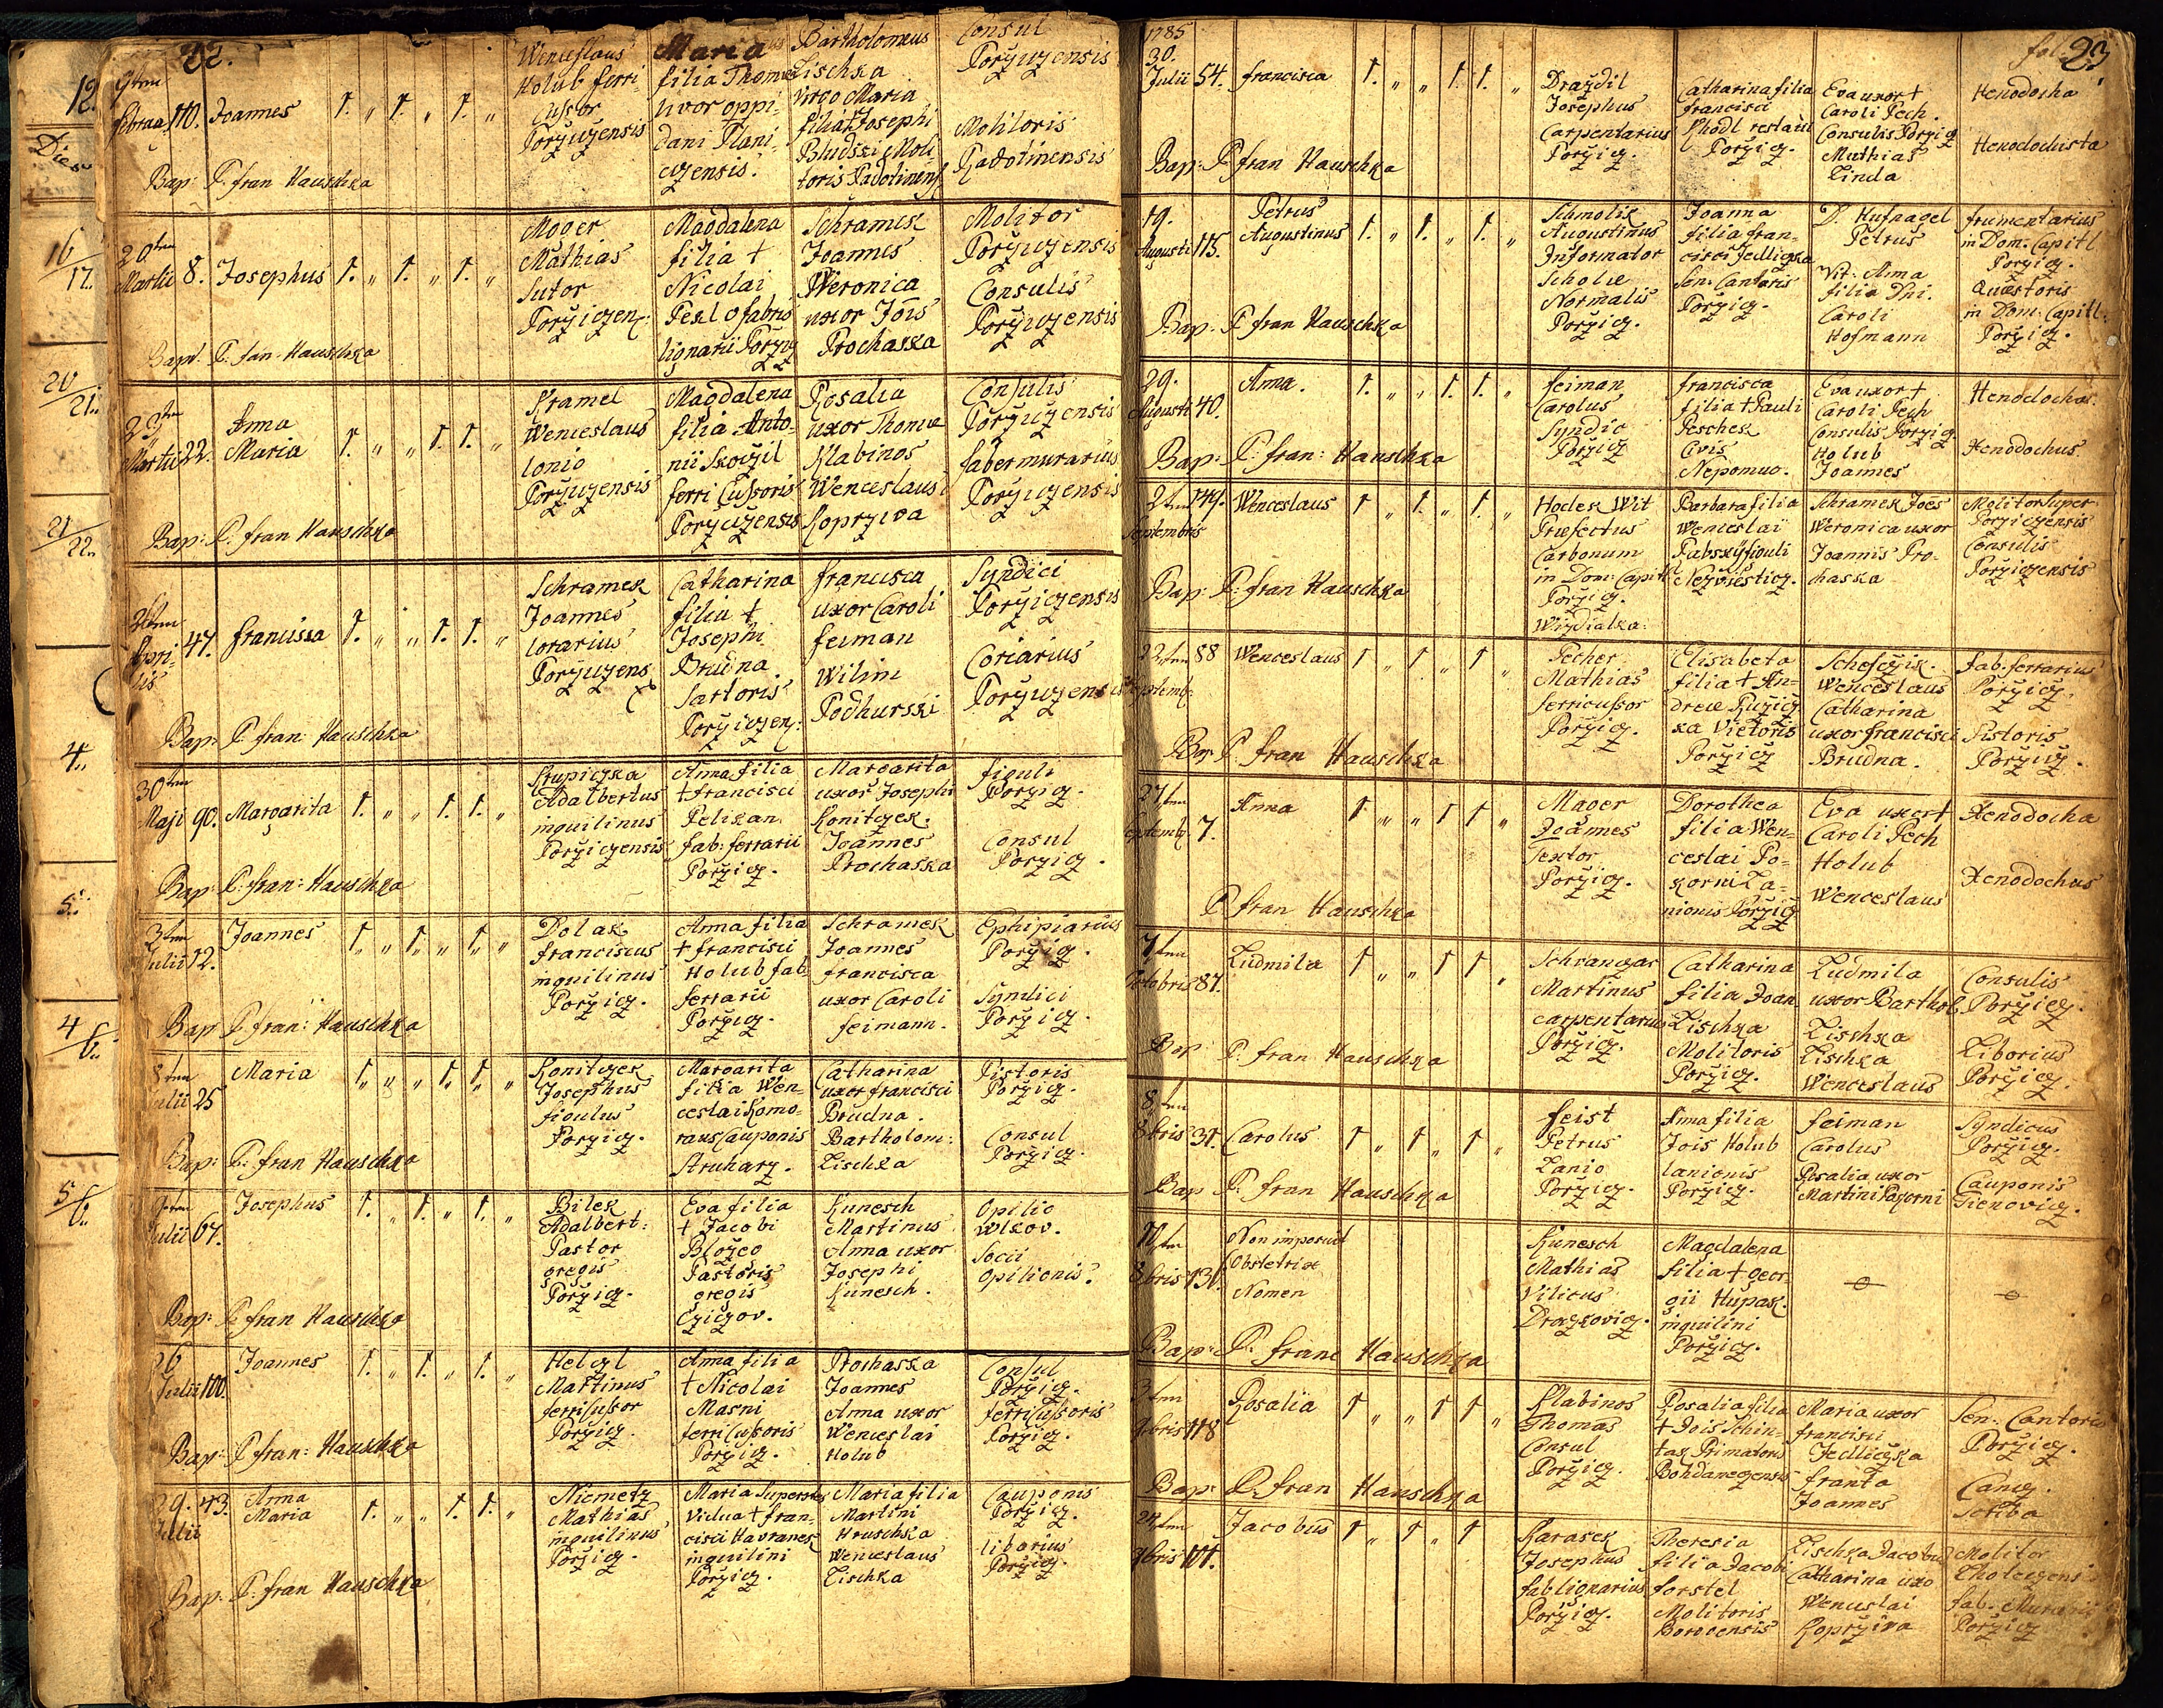 22.
12.
Dies
16
17.
20
21.
21
22.
4.
5.
4
6.
5
6.
9tna
Februa 110. Joannes 1. „ 1. „ 1. „
Wenceslaus
Holub ferri-
cussor
Porzyczensis
Maria
filia Thomae
dani Plani-
czensis.
Bartholomeus
Lischka
Virgo Maria
filia Josephi
Bludski Moli-
toris Radotinens
Consul
Porzyczensis
Molitoris
Radotinensis
Bap: P. fran Hauschka
20tna
Martii 8. Josephus 1. „ 1. „ 1. „
Moger
Mathias
Sutor
Porzyiczen:
Magdalena
filia †
Nicolai
Pexl fabris
lignarii Porzicz
Schramek
Joannes
Weronica
uxor Jois
Prochaska
Molitor
Porzyczensis
Consulis
Porzyczensis
Bapt. P: fan. Hauschka
Martii 22. Anna
Maria 1. „ „ 1. 1. „
Kramel
Wenceslaus
lanio
Porzyczensis
Magdalena
filia Anto-
nii Skoczil
ferri Cussoris
Porzyczensis
Rosalia
uxor Thomae
Klabinos
Wenceslaus
Koprziva
Consulis
Porzyczensis
faber murarius
Porzyczensis
Bap: P. fran Hauschka
Apri-
lis 47. Francissa 1. „ „ 1. 1. „
Schramek
Joannes
lorarius
Porzyczens
Catharina
filia †
Josephi
Brudna
Sartoris
Porzyiczen:
Francisca
uxor Caroli
feiman
Wilim
Podhurski
Syndici
Porzyiczensis
Coriarius
Porzyczensis
Bap: P. fran: Hauschka
30tna
Maji 90. Margarita 1. „ „ 1. 1. „
Krupiczka
Adalbertus
inquilinus
Porziczensis
Anna filia
† francisci
Pelikan
fab: ferrarii
Porzicz.
Margarita
uxor Josephi
Koniczek.
Joannes
Prochaska
figuli
Porzicz.
Consul
Porzicz.
Bap: P: fran: Hauschka
3tna
Julii 12. Joannes 1. „ 1. „ 1. „
Dolak
franciscus
inquilinus
Porzicz.
Anna filia
† francisci
Holub fab
ferrarii
Porzicz.
Schramek
Joannes
francisca
uxor Caroli
feimann.
Ephipiarius
Porzicz.
Syndici
Porzicz.
Bap P. fran: Hauschka
8tna
Julii 25 Maria 1. „ „ 1. 1. „
Koniczek
Josephus
figulus
Porzicz.
Margarita
filia Wen-
ceslai Komo-
raus Cauponis
Struharz.
Catharina
uxor francisci
Brudna.
Bartholom:
Lischka
Pistoris
Porzicz.
Consul
Porzicz.
Bap: P: fran Hauschka
9tna
Julii 67. Josephus 1. „ 1. „ 1. „
Bilek
Adalbert:
Pastor
gregis
Porzicz.
Eva filia
† Jacobi
Blozeo
Pastoris
gregis
Cziczov.
Kunesch
Martinus
Anna uxor
Josephi
Kunesch.
Opilio
Wlkov.
Socii
Opilionis.
Bap: P. fran Hauschka
Julii 100. Joannes 1. „ 1. „ 1. „
Helczl
Martinus
ferricussor
Porzicz.
Anna filia
† Nicolai
Masni
ferricussoris
Porzicz.
Prochaska
Joannes
Anna uxor
Wenceslai
Holub
Consul
Porzicz.
ferricussoris
Porzicz.
Bap: P. fran: Hauschka
29. 43. Anna
Julii Maria 1. „ „ 1. 1. „
Niemetz
Mathias
inquilinus
Porzicz.
Maria Superstes
Vidua † fran-
cisci Havranek
inquilini
Porzicz.
Maria filia
Martini
Hruschka
Wenceslaus
Lischka
Cauponis
Porzicz.
liborius
Porzicz.
Bap: P: fran Hauschka
1785
fol: 23
30.
Julii 54. francisca 1. „ „ 1. 1. „
Drazdil
Josephus
Carpentarius
Porzicz.
Catharina filia
francisci
Porzicz.
Eva uxor †
Caroli Pech.
Consulis Porzicz
Mathias
Linda
Henodocha
Henodochista
Bap: P fran Hauschka
19.
Augusti 115. Petrus
Augustinus 1. „ 1. „ 1. „
Schmolik
Augustinus
Informator
Scholae
Normalis
Porzicz.
Joanna
filia fran-
cisci Jedliczka
Sen. Cantoris
Porzicz.
D. Hufnagel
Petrus
Vir: Anna
filia Dni.
Caroli
Hofmann
frumentarius
in Dom. Capitl
Porzicz.
Quaestoris
in Dom. Capitl.
Porzicz.
Bap: P fran Hauschka
29.
Augusti 40. Anna. 1. „ „ 1. 1. „
feiman
Carolus
Syndic
Porzicz
francisca
filia † Pauli
Peschek
Civis
Nepomuc.
Eva uxor †
Caroli Pech
Consulis Porzicz.
Holub
Joannes
Henodocha.
Xenodochus.
Bap: P: fran: Hauschka
2tna 149. Wenceslaus 1 „ 1. „ 1. „
Septembris
Hodek Wit
Praefectus
Carbonum
in Dom: Capitl
Porzicz.
Wizdialka.
Barbara filia
Wenceslai
Rabsky figuli
Nezviesticz.
Schramek Joes
Weronica uxor
Joannis Pro-
chaska
Molitor Super
Porziczensis
Consulis
Porziczensis
Bap: P: fran Hauschka
22tna 88 Wenceslaus 1 „ 1 „ 1 „
Septemb:
Pecher
Mathias
ferricussor
Porzicz.
Elisabeta
filia † An-
dreae Ruzicz
ka Victoris
Porzicz
Schefczik.
Wenceslaus
Catharina
uxor francisci
Brudna.
fab. ferrarius
Porzicz.
Pistoris
Porzicz.
Bap P fran Hauschka
27tna
Septemb 7. Anna 1 „ „ 1 1 „
Mager
Joannes
Textor
Porzicz.
Dorothea
filia Wen-
ceslai Po-
korni La-
nionis Porzicz
Eva uxor †
Caroli Pech
Holub
Wenceslaus
Xenodocha
Xenodochus
P fran Hauschka
7tna
Octobris 87. Ludmila 1 „ „ 1 1 „
Martinus
carpentarius
Porzicz.
Catharina
filia Joan
Lischka
Molitoris
Porzicz.
Ludmila
uxor Barthol
Lischka
Lischka
Wenceslaus
Consulis
Porzicz.
Liborius
Porzicz.
Bap P. fran Hauschka
8tna
8bris 31. Carolus 1 „ 1 „ 1 „
feist
Petrus
Lanio
Porzicz.
Anna filia
Jois Holub
lanionis
Porzicz.
feiman
Carolus
Rosalia uxor
Martini Pagorni
Syndicus
Porzicz.
Cauponis
Tienovicz.
Bap P. fran Hauschka
8bris 131. Non imposuit
Obstetrix
Nomen
Kunesch
Mathias
Vilicus
Draczkovicz.
Magdalena
filia † Geor
gii Hupak.
inquilini
Porzicz.
Bap: P. franc Hauschka
3tna
9bris 118 Rosalia 1 „ „ 1 1 „
Klabinos
Thomas
Consul
Porzicz.
Rosalia filia
† Jois Schin-
tak Primatoris
Bohdaneczensis
Maria uxor
francisci
Jedliczka
franta
Joannes
Sen: Cantoris
Porzicz.
Canc.
Scriba
Bap: P. fran Hauschka
24tna
9bris 101. Jacobus 1 „ 1 „ 1
Karasek
Josephus
fab lignarius
Porzicz.
Theresia
filia Jacobi
forstel
Molitoris
Borovensis
Lischka Jacobus
Catharina uxo
Wenceslai
Koprziva
Molitor
fab. Murarii
Porzicz